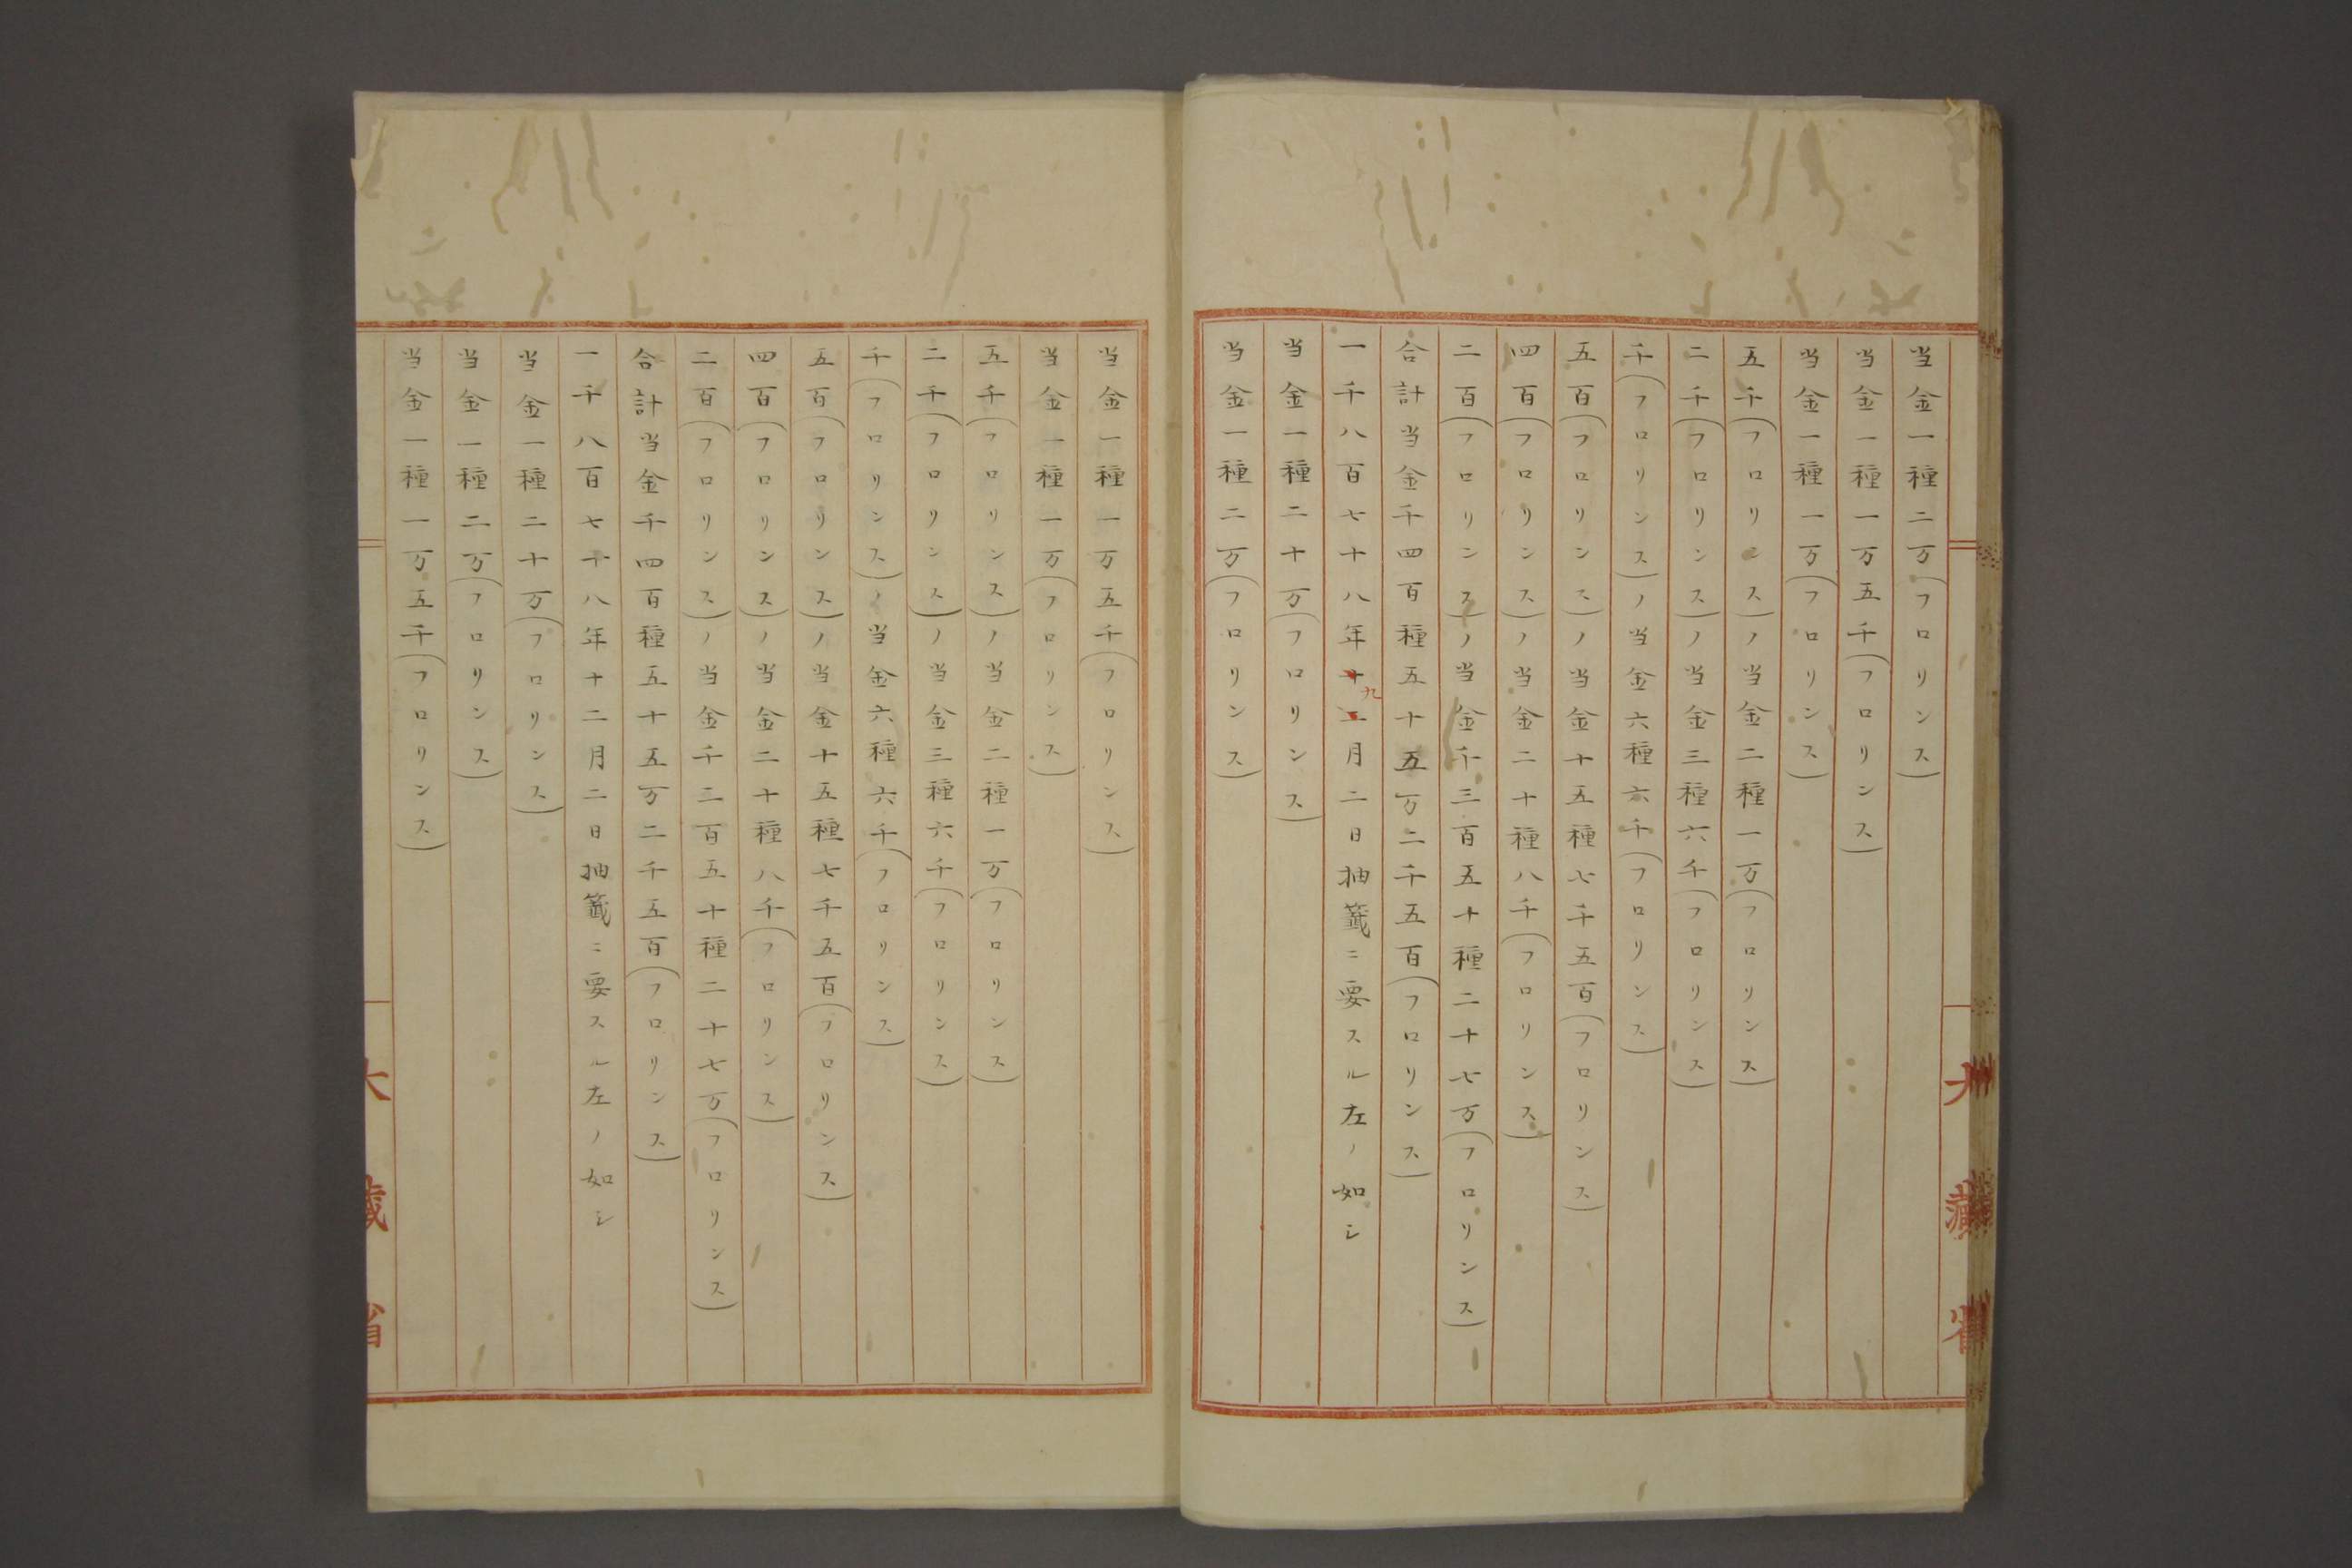 当金一種二万(フロリンス)
当金一種一万五千(フロリンス)
当金一種一万(フロリンス)
五千(フロリンス)ノ当金二種一万(フロリンス)
二千(フロリンス)ノ当金三種六千(フロリンス)
千(フロリンス)ノ当金六種六千(フロリンス)
五百(フロリンス)ノ当金十五種七千五百(フロリンス)
四百(フロリンス)ノ当金二十種八千(フロリンス)
二百(フロリンス)ノ当金千三百五十種二十七万(フロリンス)
合計当金千四百種五十五万二千五百(フロリンス)
一千八百七十八年十二九月二日抽籤ニ要スル左ノ如シ
当金一種二十万(フロリンス)
当金一種二万(フロリンス)
大藏省
当金一種一万五千(フロリンス)
当金一種一万(フロリンス)
五千(フロリンス)ノ当金二種一万(フロリンス)
二千(フロリンス)ノ当金三種六千(フロリンス)
千(フロリンス)ノ当金六種六千(フロリンス)
五百(フロリンス)ノ当金十五種七千五百(フロリンス)
四百(フロリンス)ノ当金二十種八千(フロリンス)
二百(フロリンス)ノ当金千三百五十種二十七万(フロリンス)
合計当金千四百種五十五万二千五百(フロリンス)
一千八百七十八年十二月二日抽籤ニ要スル左ノ如シ
当金一種二十万(フロリンス)
当金一種二万(フロリンス)
当金一種一万五千(フロリンス)
大藏省